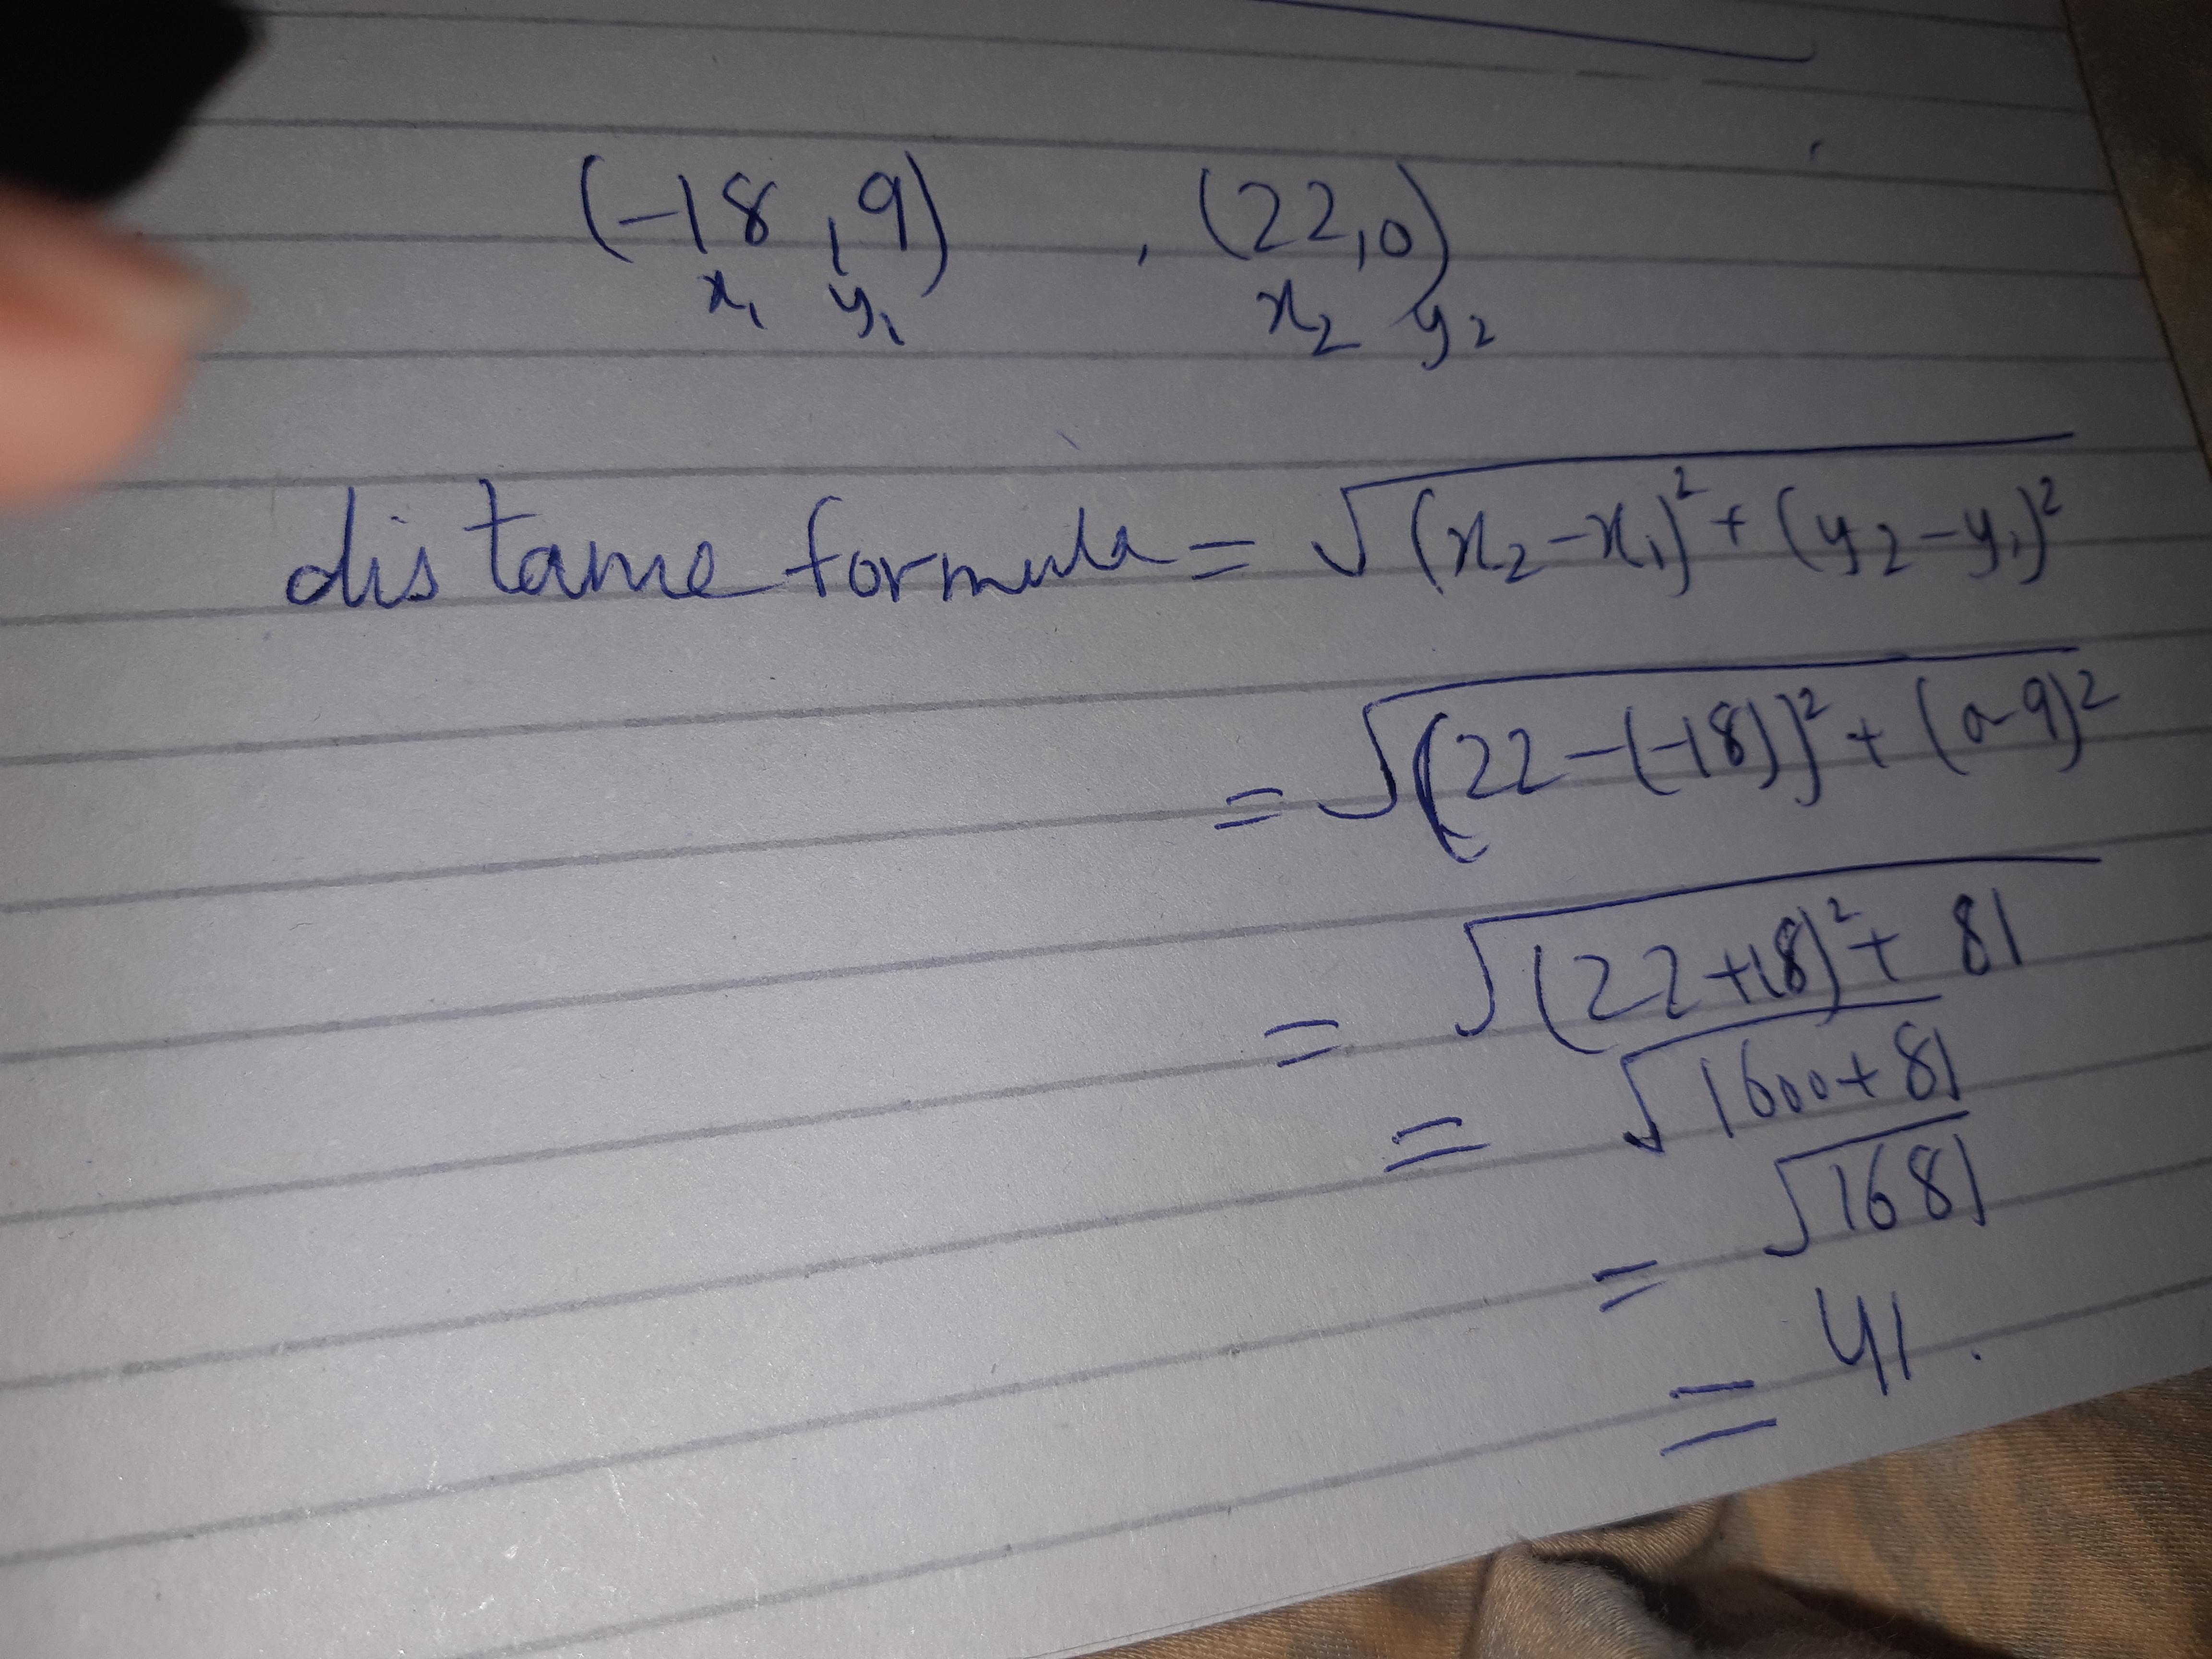 (-18,9) , (22,0)
x₁ y₁ x₂ y₂
distance formula = √(x₂-x₁)²+(y₂-y₁)²
= √(22-(-18))²+(0-9)²
= √(22+18)²+81
= √1600+81
= √1681
= 41.